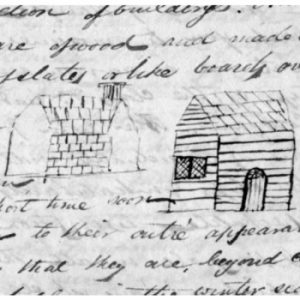 of buildings.
are of wood and made
slates or like boards ov
short time soon
to their outré appeara
that they are, beyond
the winter